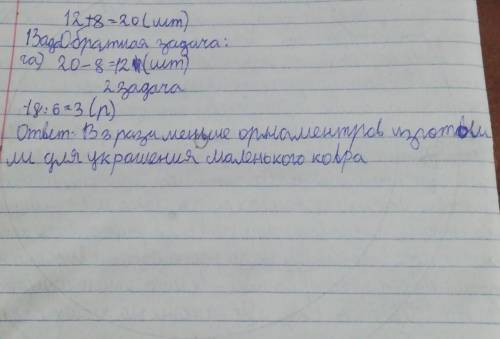 12+8=20(шт)
1задОбратная задача:
ча) 20-8=12(шт)
2 задача
18:6=3(р)
Ответ: В 3 раза меньше орнаментров изготови
ли для украшения маленького ковра